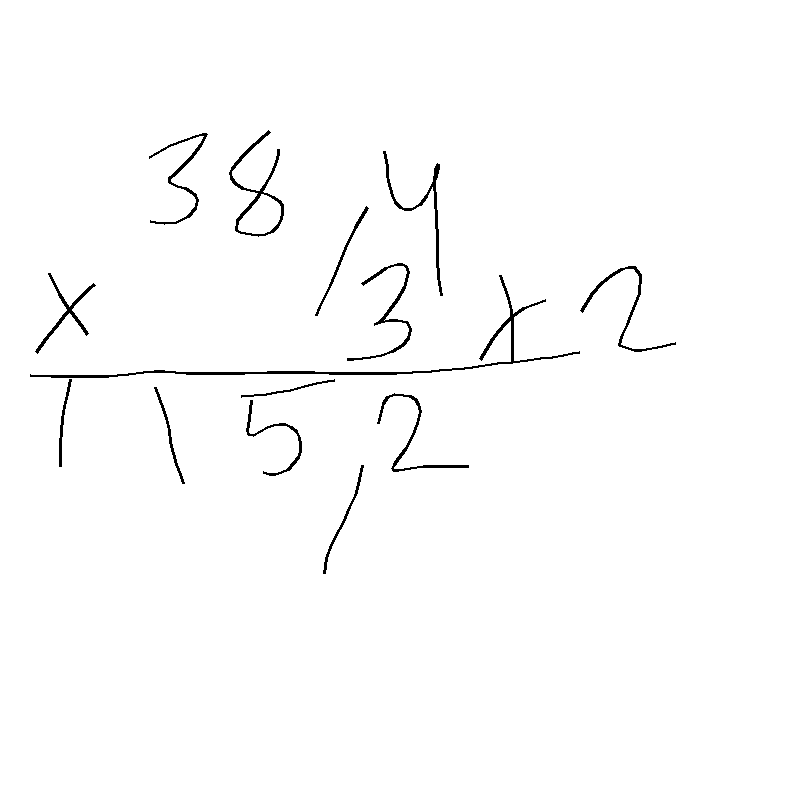 38,4
x 3 x 2
115,2